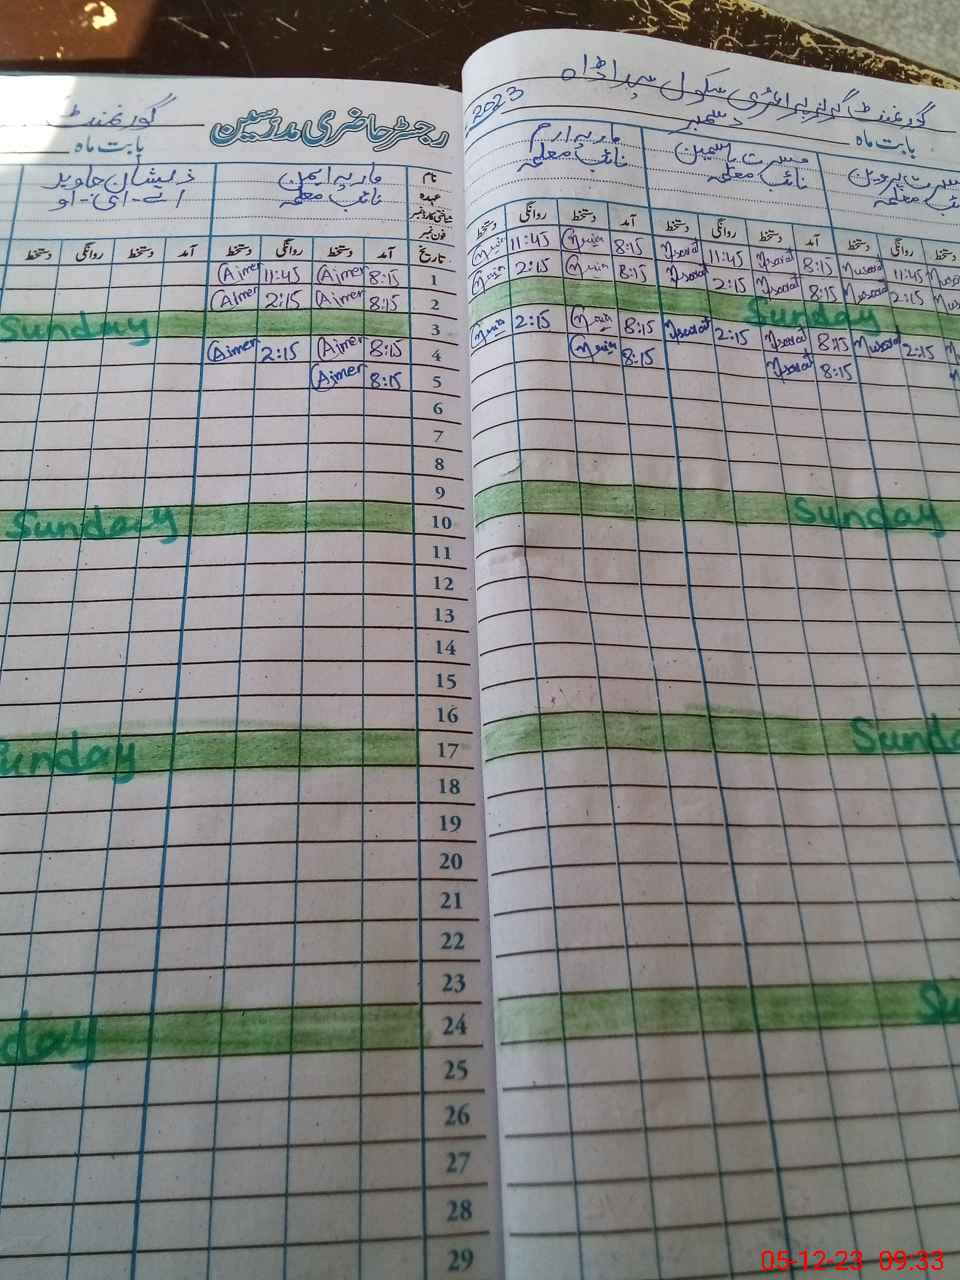 گورنمنٹ گرلز پرائمری سکول
دسمبر
بابت ماہ
2023
رجسٹر حاضری مدرسین
گورنمنٹ
بابت ماہ
نام ماریہ ایمن ذیشان جاوید
عہدہ نائب معلمہ اے-ای-او
شناختی کارڈ نمبر
فون نمبر
تاریخ آمد دستخط روانگی دستخط آمد دستخط روانگی دستخط
1 8:15 Aimen 11:45 Aimen
2 8:15 Aimen 2:15 Aimen
3 Sunday
4 8:15 Aimen 2:15 Aimen
5 8:15 Aimen
6
7
8
9
10 Sunday
11
12
13
14
15
16
17 Sunday
18
19
20
21
22
23
24 day
25
26
27
28
29
مسرت پروین مسرت یاسمین ماریہ ارم
نائب معلمہ نائب معلمہ نائب معلمہ
دستخط روانگی دستخط آمد دستخط روانگی دستخط آمد دستخط روانگی دستخط
11:45 Musarat 8:15 Msarat 11:45 Msarat 8:15 11:45
2:15 Musarat 8:15 Msarat 2:15 Msarat 8:15 2:15
Sunday
2:15 Musarat 8:15 Msarat 2:15 Msarat 8:15 2:15
8:15 Msarat 8:15
Sunday
Sunda
Su
05-12-23 09:33